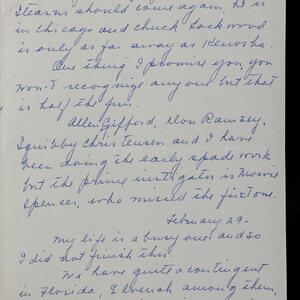 Stearns should come again, he is
in Chicago and Chuck Lockwood
is only as far away as Kenosha.
One thing I promise you, you
won't recognize anyone but that
is half the fun.
Allen Gifford, Don Ramsey,
Squibby Christensen and I have
been doing the early spade work
but the prime instigator is Morrie
Spencer, who missed the first one.
February 29-
My life is a busy one and so
I did not finish this.
We have quite a contingent
in Florida, among them,